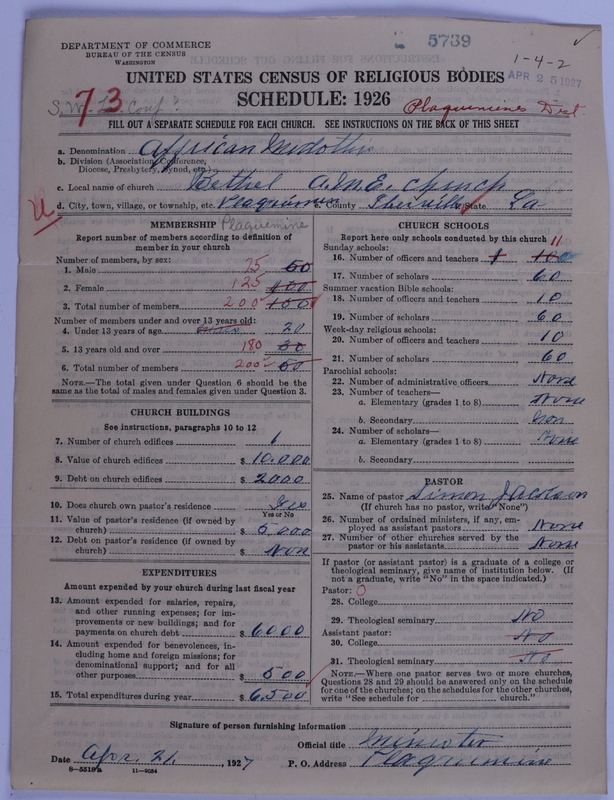 DEPARTMENT OF COMMERCE
BUREAU OF THE CENSUS
WASHINGTON
5739
1-4-2
APR 25 1927
UNITED STATES CENSUS OF RELIGIOUS BODIES
SCHEDULE: 1926
S.W. La. Conf ?
73
Plaquemine Dist
FILL OUT A SEPARATE SCHEDULE FOR EACH CHURCH. SEE INSTRUCTIONS ON THE BACK OF THIS SHEET
a. Denomination African Methodis
b. Division (Association, Conference, Diocese, Presbytery, Synod, etc.)
c. Local name of church Bethel A.M.E. Church
d. City, town, village, or township, etc. Plaquimine e. County Iberville State La
Plaquemine
MEMBERSHIP
Report number of members according to definition of
member in your church
Number of members, by sex:
1. Male 75 50
2. Female 125 100
3. Total number of members 200 150
Number of members under and over 13 years old:
4. Under 13 years of age 20
5. 13 years old and over 180
6. Total number of members 200
NOTE.—The total given under Question 6 should be the
same as the total of males and females given under Question 3.
CHURCH BUILDINGS
See instructions, paragraphs 10 to 12
7. Number of church edifices 1
8. Value of church edifices $ 10.000
9. Debt on church edifices $ 2000
10. Does church own pastor's residence Yes
Yes or No
11. Value of pastor's residence (if owned by
church) $ 5,000
12. Debt on pastor's residence (if owned by
church) $ Non
EXPENDITURES
Amount expended by your church during last fiscal year
13. Amount expended for salaries, repairs,
and other running expenses; for im-
provements or new buildings; and for
payments on church debt $ 6000
14. Amount expended for benevolences, in-
cluding home and foreign missions; for
denominational support; and for all
other purposes $ 500
15. Total expenditures during year $ 6,500
CHURCH SCHOOLS
Report here only schools conducted by this church
Sunday schools: 11
16. Number of officers and teachers
17. Number of scholars 60
Summer vacation Bible schools:
18. Number of officers and teachers 10
19. Number of scholars 60
Week-day religious schools:
20. Number of officers and teachers 10
21. Number of scholars 60
Parochial schools:
22. Number of administrative officers None
23. Number of teachers—
a. Elementary (grades 1 to 8) None
b. Secondary Non
24. Number of scholars—
a. Elementary (grades 1 to 8) None
b. Secondary
PASTOR
25. Name of pastor Simon Jackson
(If church has no pastor, write "None")
26. Number of ordained ministers, if any, em-
ployed as assistant pastors None
27. Number of other churches served by the
pastor or his assistants None
If pastor (or assistant pastor) is a graduate of a college or
theological seminary, give name of institution below. (If
not a graduate, write "No" in the space indicated.)
Pastor: O
28. College
29. Theological seminary No
Assistant pastor:
30. College No
31. Theological seminary No
NOTE.—Where one pastor serves two or more churches,
Questions 28 and 29 should be answered only on the schedule
for one of the churches; on the schedules for the other churches,
write "See schedule for church."
Signature of person furnishing information
Official title Minister
Date Apr. 21, 1927 P. O. Address Plaquemine
8-5519a 11-9034